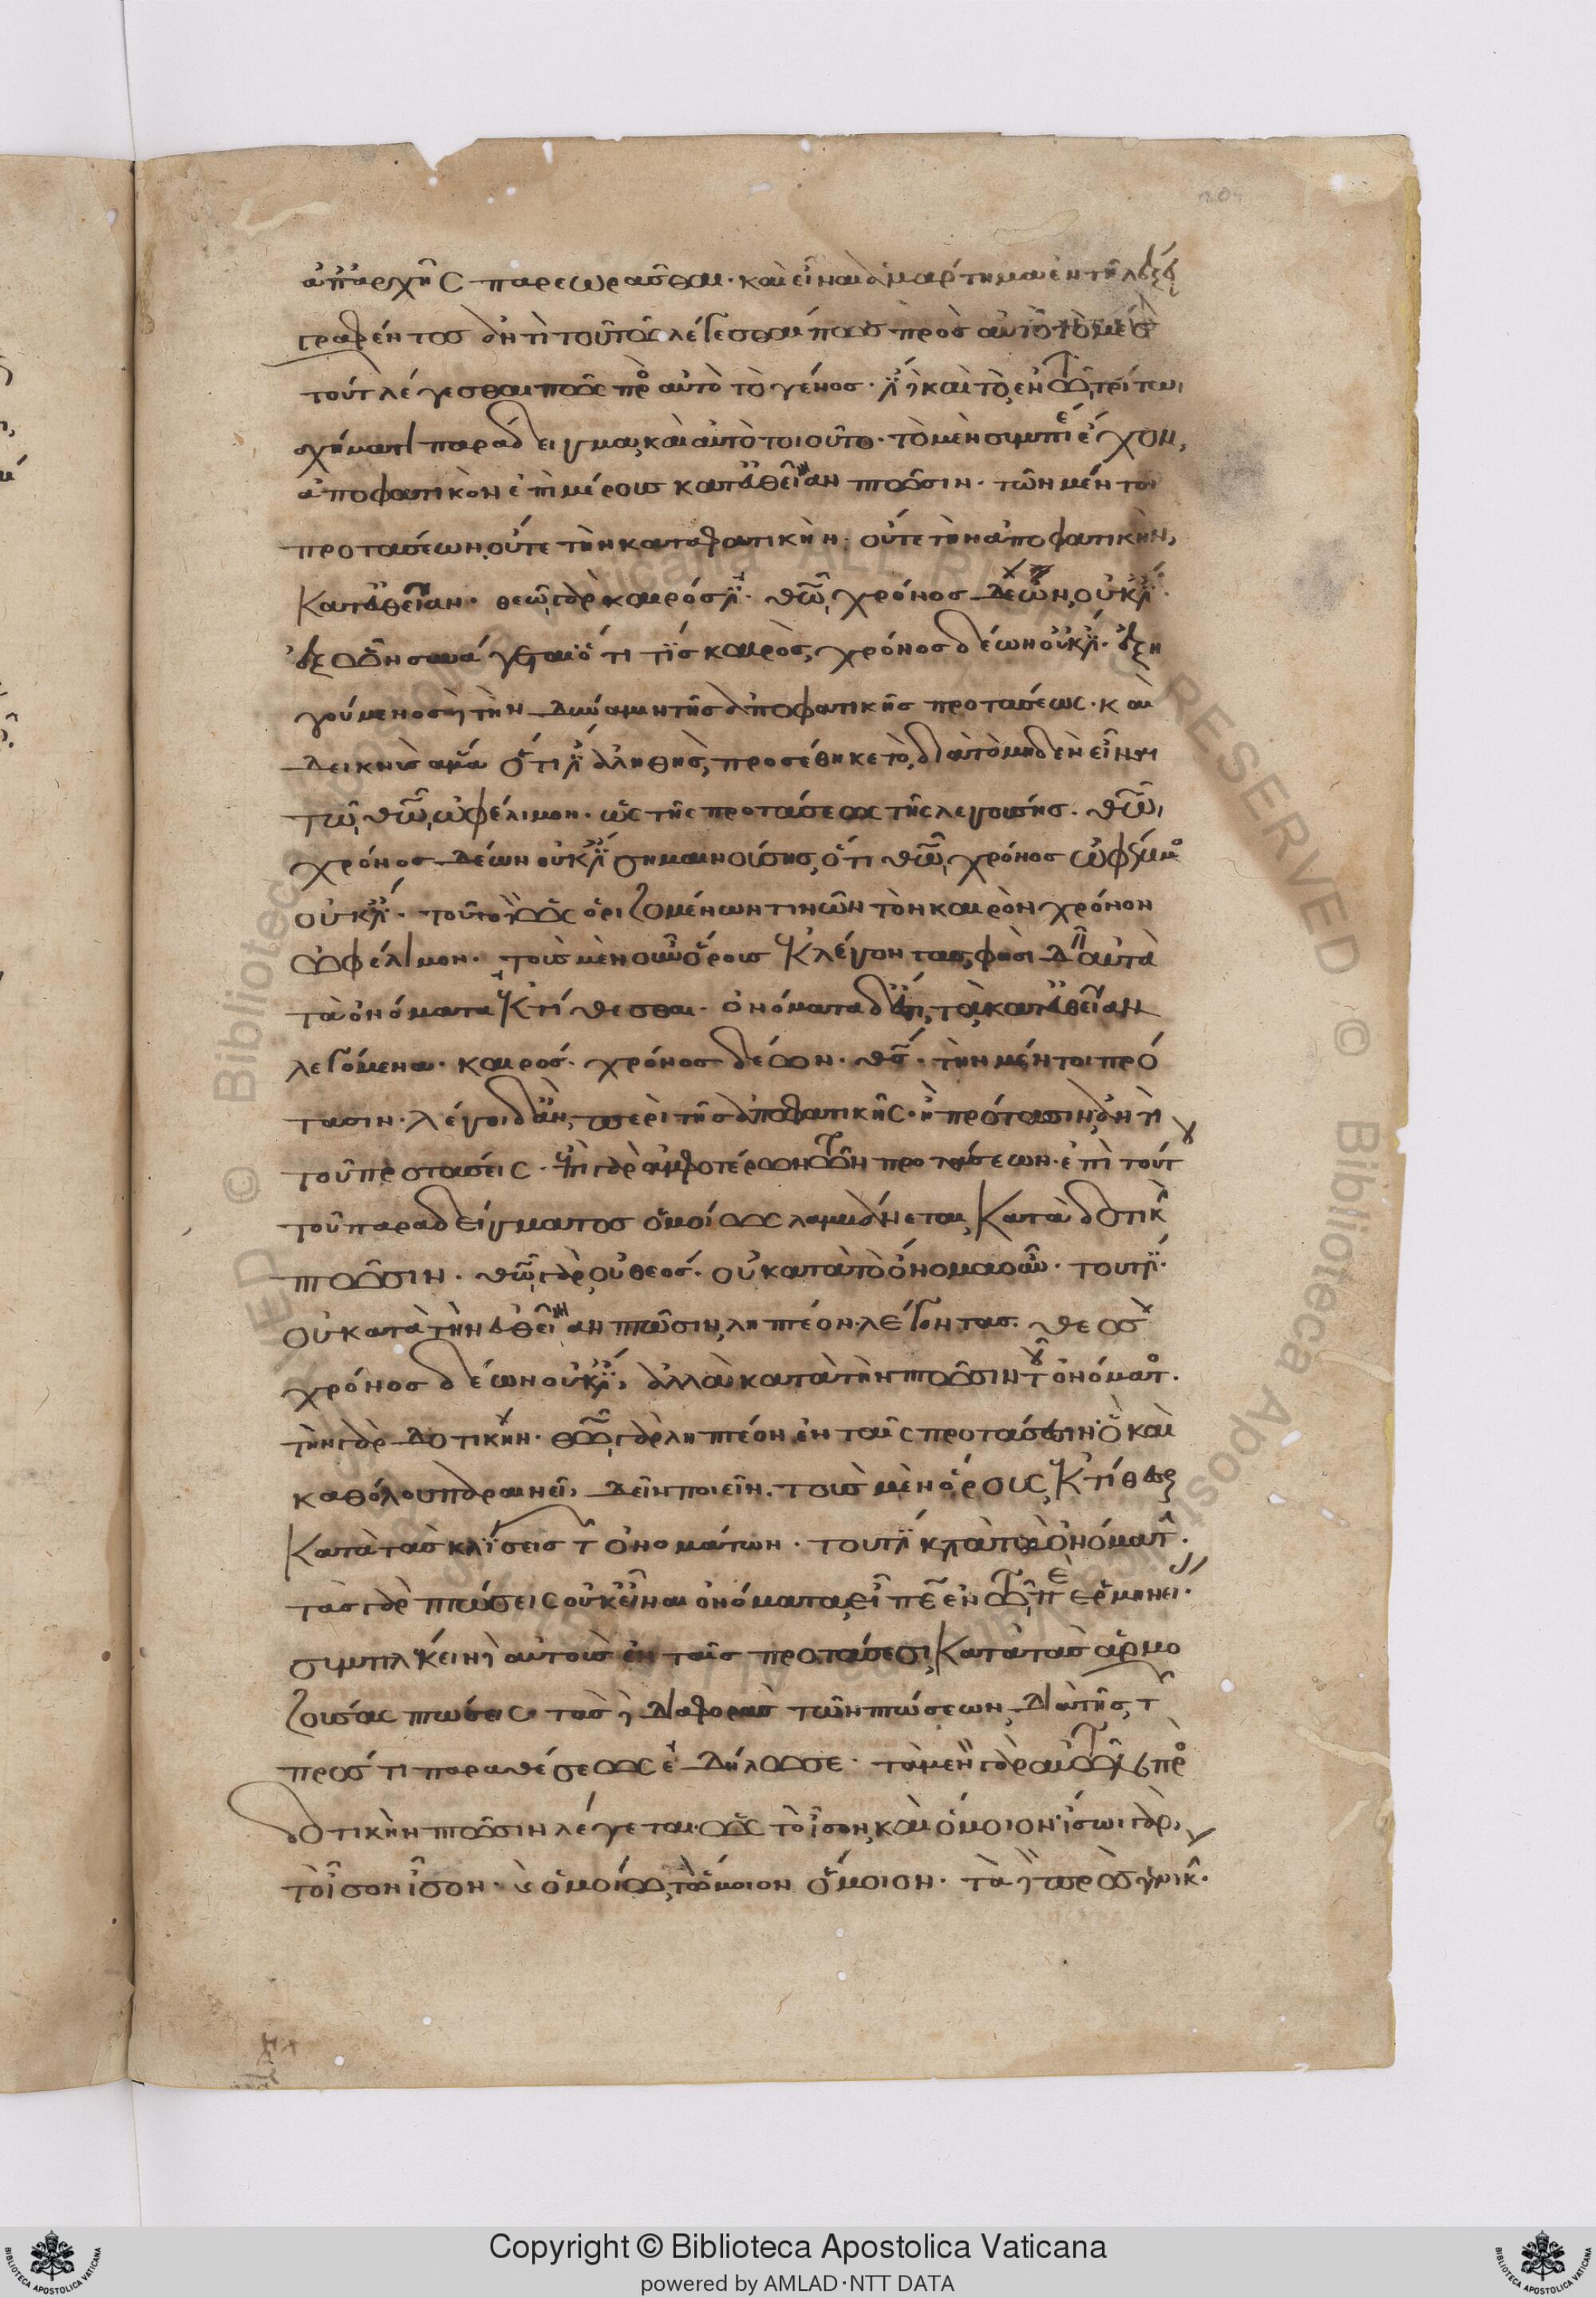 ἀπ' ἀρχῆς παρεωρᾶσθαι· καὶ εἶναι ἁμάρτημα ἐν τῆι λέξει
γραφέντος ἀντὶ τοῦ πῶς λέγεσθαι πως πρὸς αὐτὸ τὸ μέσον
τούτου λέγεσθαι πως πρὸς αὐτὸ τὸ γένος· ἔστι δὲ καὶ τὸ ἐν τῶι τρίτωι
σχήματι παράδειγμα, καὶ αὐτὸ τοιοῦτο· τὸ μὲν συμπέρασμα ἔχον,
ἀποφατικὸν ἐπὶ μέρους κατ' εὐθεῖαν πτῶσιν· τῶν μέντοι
προτάσεων, οὔτε τὴν καταφατικὴν· οὔτε τὴν ἀποφατικὴν,
κατ' εὐθεῖαν· θεῶι γὰρ καιρός ἐστι· θεῶι χρόνος δέων, οὐκ ἔστι·
ἐξ ὧν συνάγεται ὅτι τὶς καιρὸς, χρόνος δέων οὐκ ἔστι· ἐξη
γούμενος δὲ τὴν δύναμιν τῆς ἀποφατικῆς προτάσεως· καὶ
δεικνὺς ἅμα ὅτι ἐστὶν ἀληθὴς, προσέθηκε τὸ, διὰ τὸ μηδὲν εἶναι
τῶι θεῶι ὠφέλιμον· ὡς τῆς προτάσεως τῆς λεγούσης· θεῶι
χρόνος δέων οὐκ ἔστι σημαινούσης, ὅτι θεῶι χρόνος ὠφέλιμος
οὐκ ἔστι· τοῦτο δὲ ὡς ὁριζομένων τινῶν τὸν καιρὸν χρόνον
ὠφέλιμον· τοὺς μὲν οὖν ὅρους ἐκλέγοντας, φησὶ δεῖ αὐτὰ
τὰ ὀνόματα ἐκτίθεσθαι· ὀνόματα δέ ἐστι, τὰ κατ' εὐθεῖαν
λεγόμενα· καιρός· χρόνος δέων· θεός· τὴν μέντοι πρό
τασιν· λέγοι δ' ἂν, περὶ τῆς ἀποφατικῆς· ἢ πρότασιν, ἀντὶ
τοῦ προτάσεις· ἐπὶ γὰρ ἀμφοτέρων τῶν προτάσεων· ἐπὶ τούτου
τοῦ παραδείγματος ὁμοίως λαμβάνεται, κατὰ δοτικὴν
πτῶσιν· θεῶι γὰρ, οὐ θεός· οὐ κατὰ τὸ ὄνομα οὖν· τουτέστι·
οὐ κατὰ τὴν εὐθεῖαν πτῶσιν, ληπτέον· λέγοντας· θεὸς
χρόνος δέων οὐκ ἔστι, ἀλλὰ κατὰ τὴν πτῶσιν τοῦ ὀνόματος·
τὴν γὰρ δοτικὴν· θεῶι γὰρ ληπτέον ἐν ταῖς προτάσεσιν· ὃ καὶ
καθόλου παραινεῖ, δεῖν ποιεῖν· τοὺς μὲν ὅρους, ἐκτίθεσθαι
κατὰ τὰς κλίσεις τῶν ὀνομάτων· τουτέστι κατὰ τὰ ὀνόματα·
τὰς γὰρ πτώσεις οὐκ εἶναι ὀνόματα, εἶπεν ἐν τῶι περὶ ἑρμηνείας·
συμπλέκειν δὲ αὐτοὺς ἐν ταῖς προτάσεσι, κατὰ τὰς ἁρμο
ζούσας πτώσεις τὰς δὲ διαφορὰς τῶν πτώσεων, διὰ τῆς τῶν
πρός τι παραθέσεως ἐδήλωσε· τὰ μὲν γὰρ αὐτῶν, πρὸς
δοτικὴν πτῶσιν λέγεται· ὡς τὸ ἴσον, καὶ ὅμοιον· ἴσωι γὰρ,
τὸ ἴσον ἴσον· καὶ ὁμοίωι, τὸ ὅμοιον ὅμοιον· τὰ δὲ πρὸς γενικὴν·
Copyright © Biblioteca Apostolica Vaticana
powered by AMLAD·NTT DATA